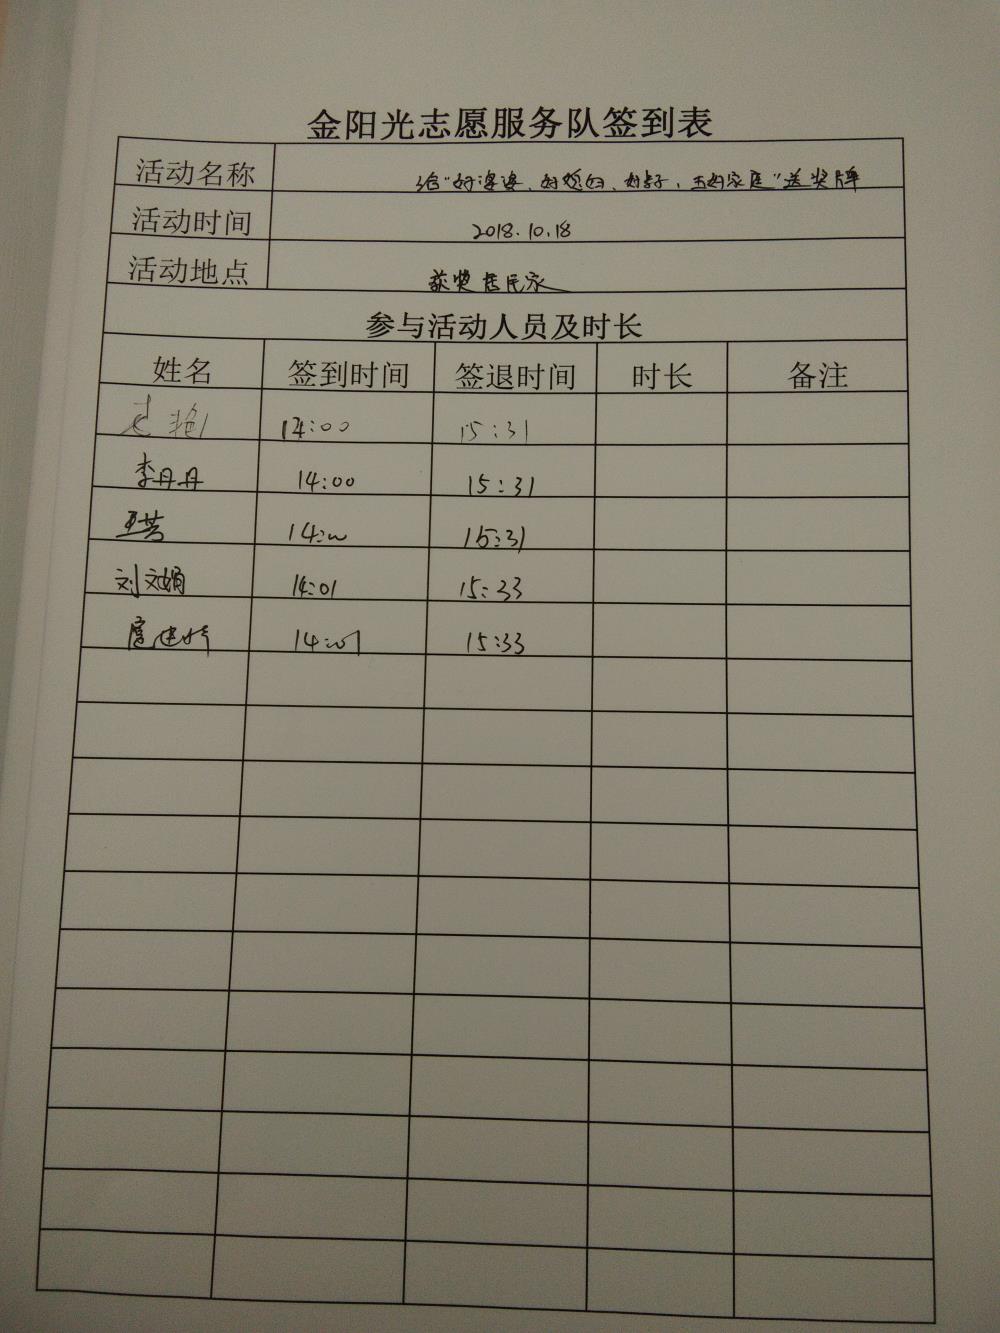 金阳光志愿服务队签到表
活动名称 给“好婆婆、好媳妇、好妯娌、五好家庭”送奖牌
活动时间 2018.10.18
活动地点 获奖居民家
参与活动人员及时长
姓名 签到时间 签退时间 时长 备注
14:00 15:31
李丹丹 14:00 15:31
王芸 14:00 15:31
刘文娟 14:01 15:33
14:01 15:33